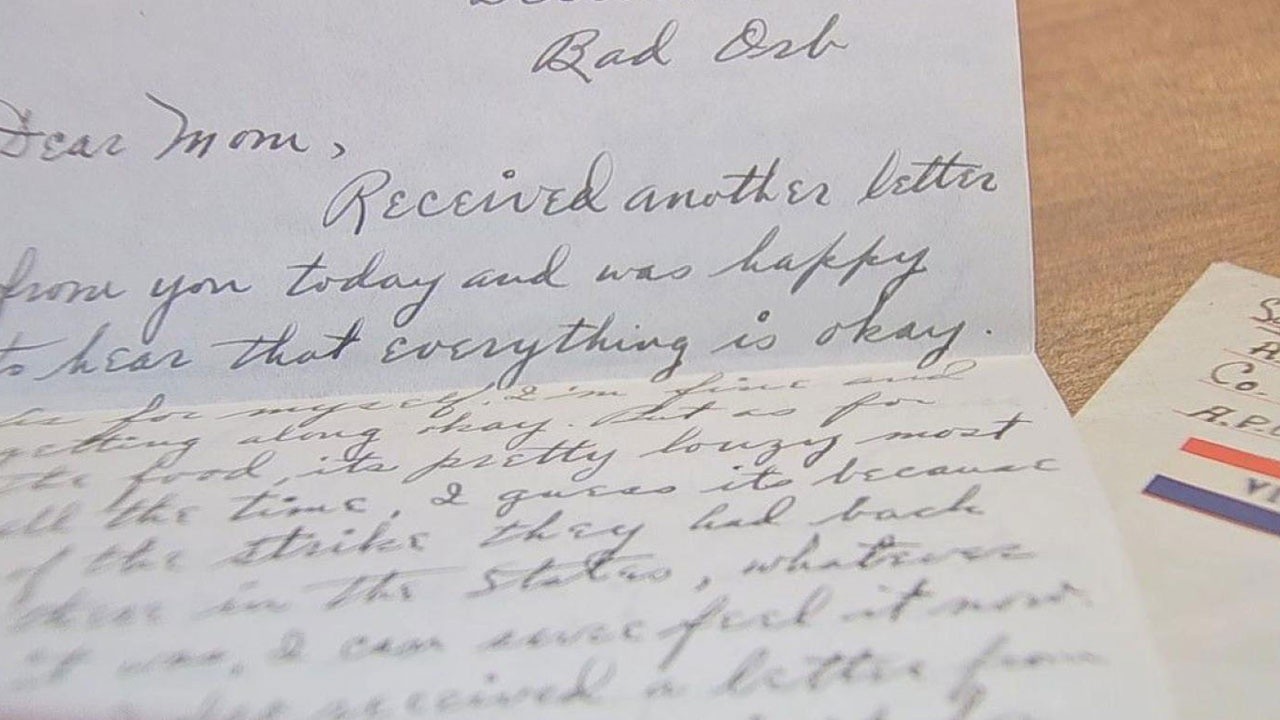 Bad Orb
Dear Mom,
Received another letter
from you today and was happy
to hear that everything is okay.
As for myself, I'm fine and
getting along okay. But as for
the food, its pretty louzy most
all the time, I guess its because
of the strike they had back
in the States, whatever
it was, I can sure feel it now.
received a letter from
Co.
A.P.
VI